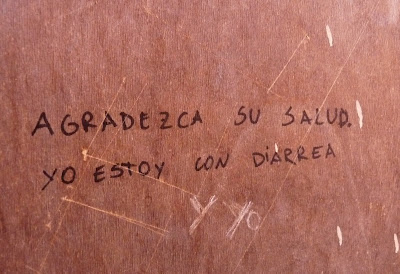 AGRADEZCA SU SALUD.
YO ESTOY CON DiARREA
Y YO